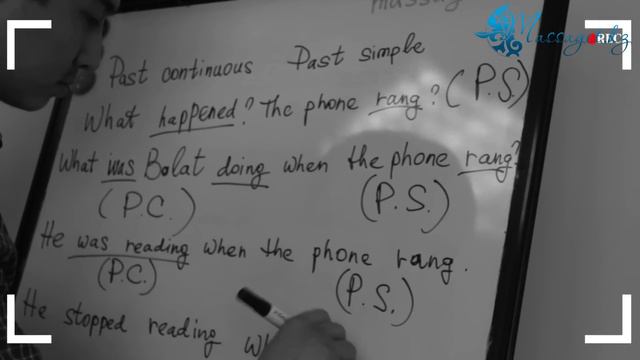 Massage.kz
REC
Past continuous Past simple
What happened? The phone rang? (P.S)
What was Bolat doing when the phone rang?
(P.C.) (P.S.)
He was reading when the phone rang.
(P.C.) (P.S.)
He stopped reading